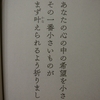 あなたの心の中の希望を小さ
その一番小さいものが
まず叶えられるよう祈りまし